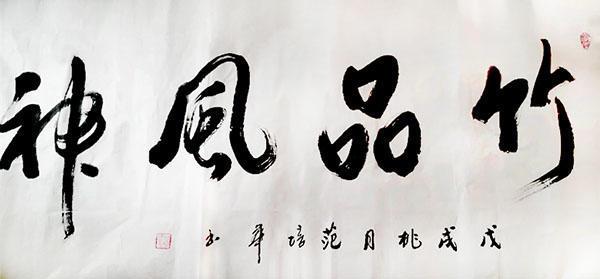 竹品風神
戊戌桃月范培華书